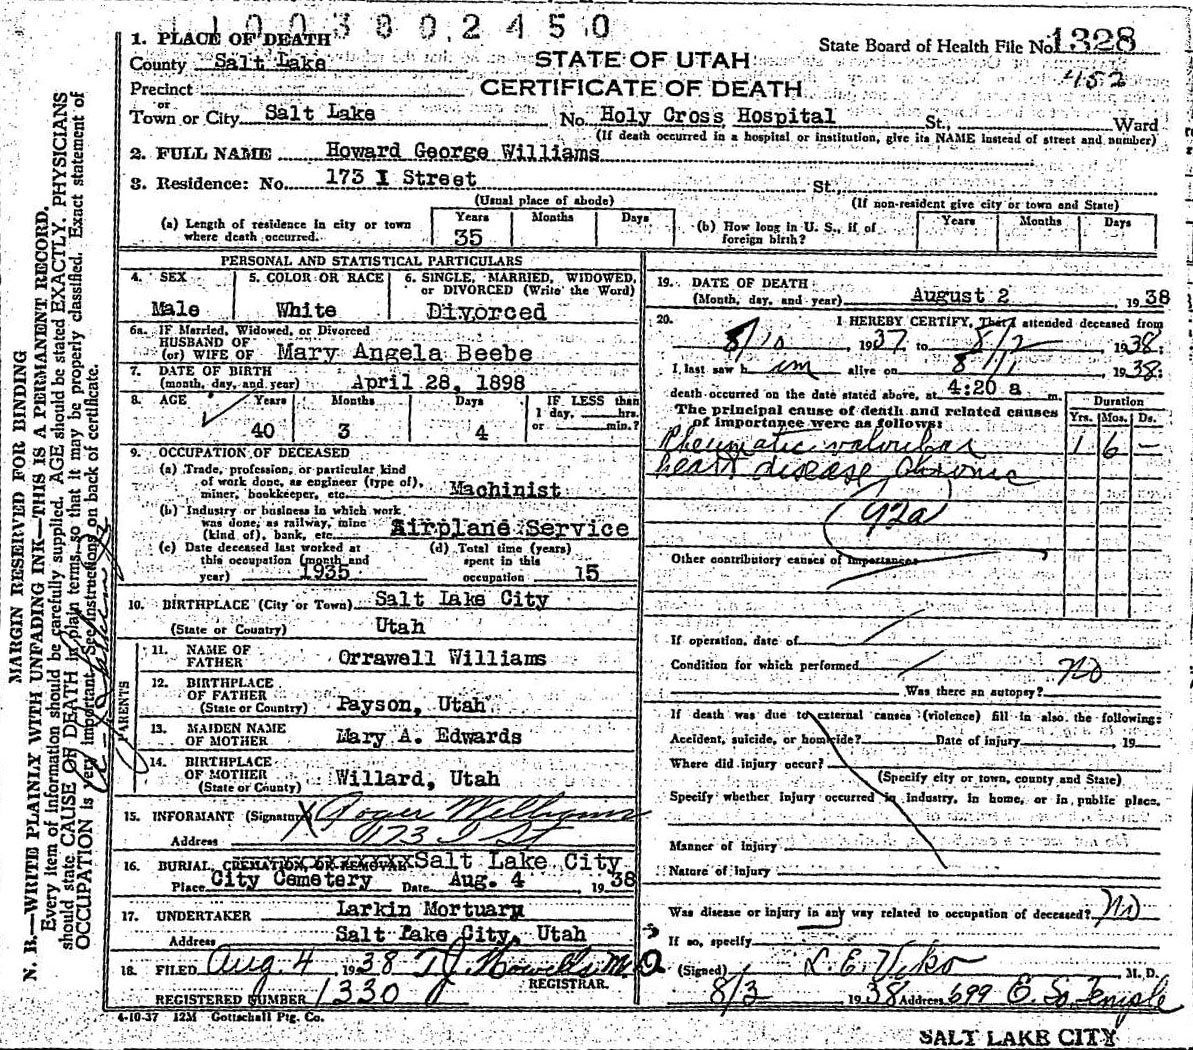 1 1 0 0 3 8 0 2 4 5 0
1. PLACE OF DEATH
State Board of Health File No. 1328
County Salt Lake
STATE OF UTAH
452
Precinct
CERTIFICATE OF DEATH
or
Town or City Salt Lake No. Holy Cross Hospital St., Ward
(If death occurred in a hospital or institution, give its NAME instead of street and number)
2. FULL NAME Howard George Williams
3. Residence: No. 173 I Street St.,
(Usual place of abode) (If non-resident give city or town and State)
(a) Length of residence in city or town where death occurred. Years 35 Months Days
(b) How long in U. S., if of foreign birth? Years Months Days
PERSONAL AND STATISTICAL PARTICULARS
4. SEX Male
5. COLOR OR RACE White
6. SINGLE, MARRIED, WIDOWED, or DIVORCED (Write the Word) Divorced
6a. IF Married, Widowed, or Divorced
HUSBAND OF
(or) WIFE OF Mary Angela Beebe
7. DATE OF BIRTH
(month, day, and year) April 28, 1898
8. AGE Years 40 Months 3 Days 4 IF LESS than 1 day, hrs. or min.?
9. OCCUPATION OF DECEASED
(a) Trade, profession, or particular kind
of work done, as engineer (type of),
miner, bookkeeper, etc. Machinist
(b) Industry or business in which work
was done, as railway, mine
(kind of), bank, etc. Airplane Service
(c) Date deceased last worked at
this occupation (month and
year) 1935
(d) Total time (years)
spent in this
occupation 15
10. BIRTHPLACE (City or Town) Salt Lake City
(State or Country) Utah
PARENTS
11. NAME OF
FATHER Orrawell Williams
12. BIRTHPLACE
OF FATHER
(State or Country) Payson, Utah
13. MAIDEN NAME
OF MOTHER Mary A. Edwards
14. BIRTHPLACE
OF MOTHER
(State or Country) Willard, Utah
15. INFORMANT (Signature) X Roger Williams
Address 173 I St
16. BURIAL, CREMATION, OR REMOVAL Salt Lake City
Place City Cemetery Date Aug. 4 1938
17. UNDERTAKER Larkin Mortuary
Address Salt Lake City, Utah
18. FILED Aug. 4 1938 T J Howells M.D.
REGISTRAR.
REGISTERED NUMBER 1330
4-10-37 12M Gottschall Ptg. Co.
19. DATE OF DEATH:
(Month, day, and year) August 2 1938
20. I HEREBY CERTIFY, That I attended deceased from
8/10 1937 to 8/2 1938:
I last saw him alive on 8/1 1938:
death occurred on the date stated above, at 4:20 a m.
The principal cause of death and related causes
of importance were as follows:
Duration
Yrs. Mos. Ds.
Rheumatic valvular 1 6 —
heart disease Chronic
92a
Other contributory causes of importance
If operation, date of
Condition for which performed
Was there an autopsy? no
If death was due to external causes (violence) fill in also the following:
Accident, suicide, or homicide? Date of injury 19
Where did injury occur?
(Specify city or town, county and State)
Specify whether injury occurred in industry, in home, or in public place.
Manner of injury
Nature of injury
Was disease or injury in any way related to occupation of deceased? no
If so, specify
(Signed) L. E. Viko M. D.
8/3 1938 Address 699 E. So. Temple
SALT LAKE CITY
MARGIN RESERVED FOR BINDING
N. B.—WRITE PLAINLY WITH UNFADING INK—THIS IS A PERMANENT RECORD.
Every item of information should be carefully supplied. AGE should be stated EXACTLY. PHYSICIANS
should state CAUSE OF DEATH in plain terms, so that it may be properly classified. Exact statement of
OCCUPATION is very important. See instructions on back of certificate.